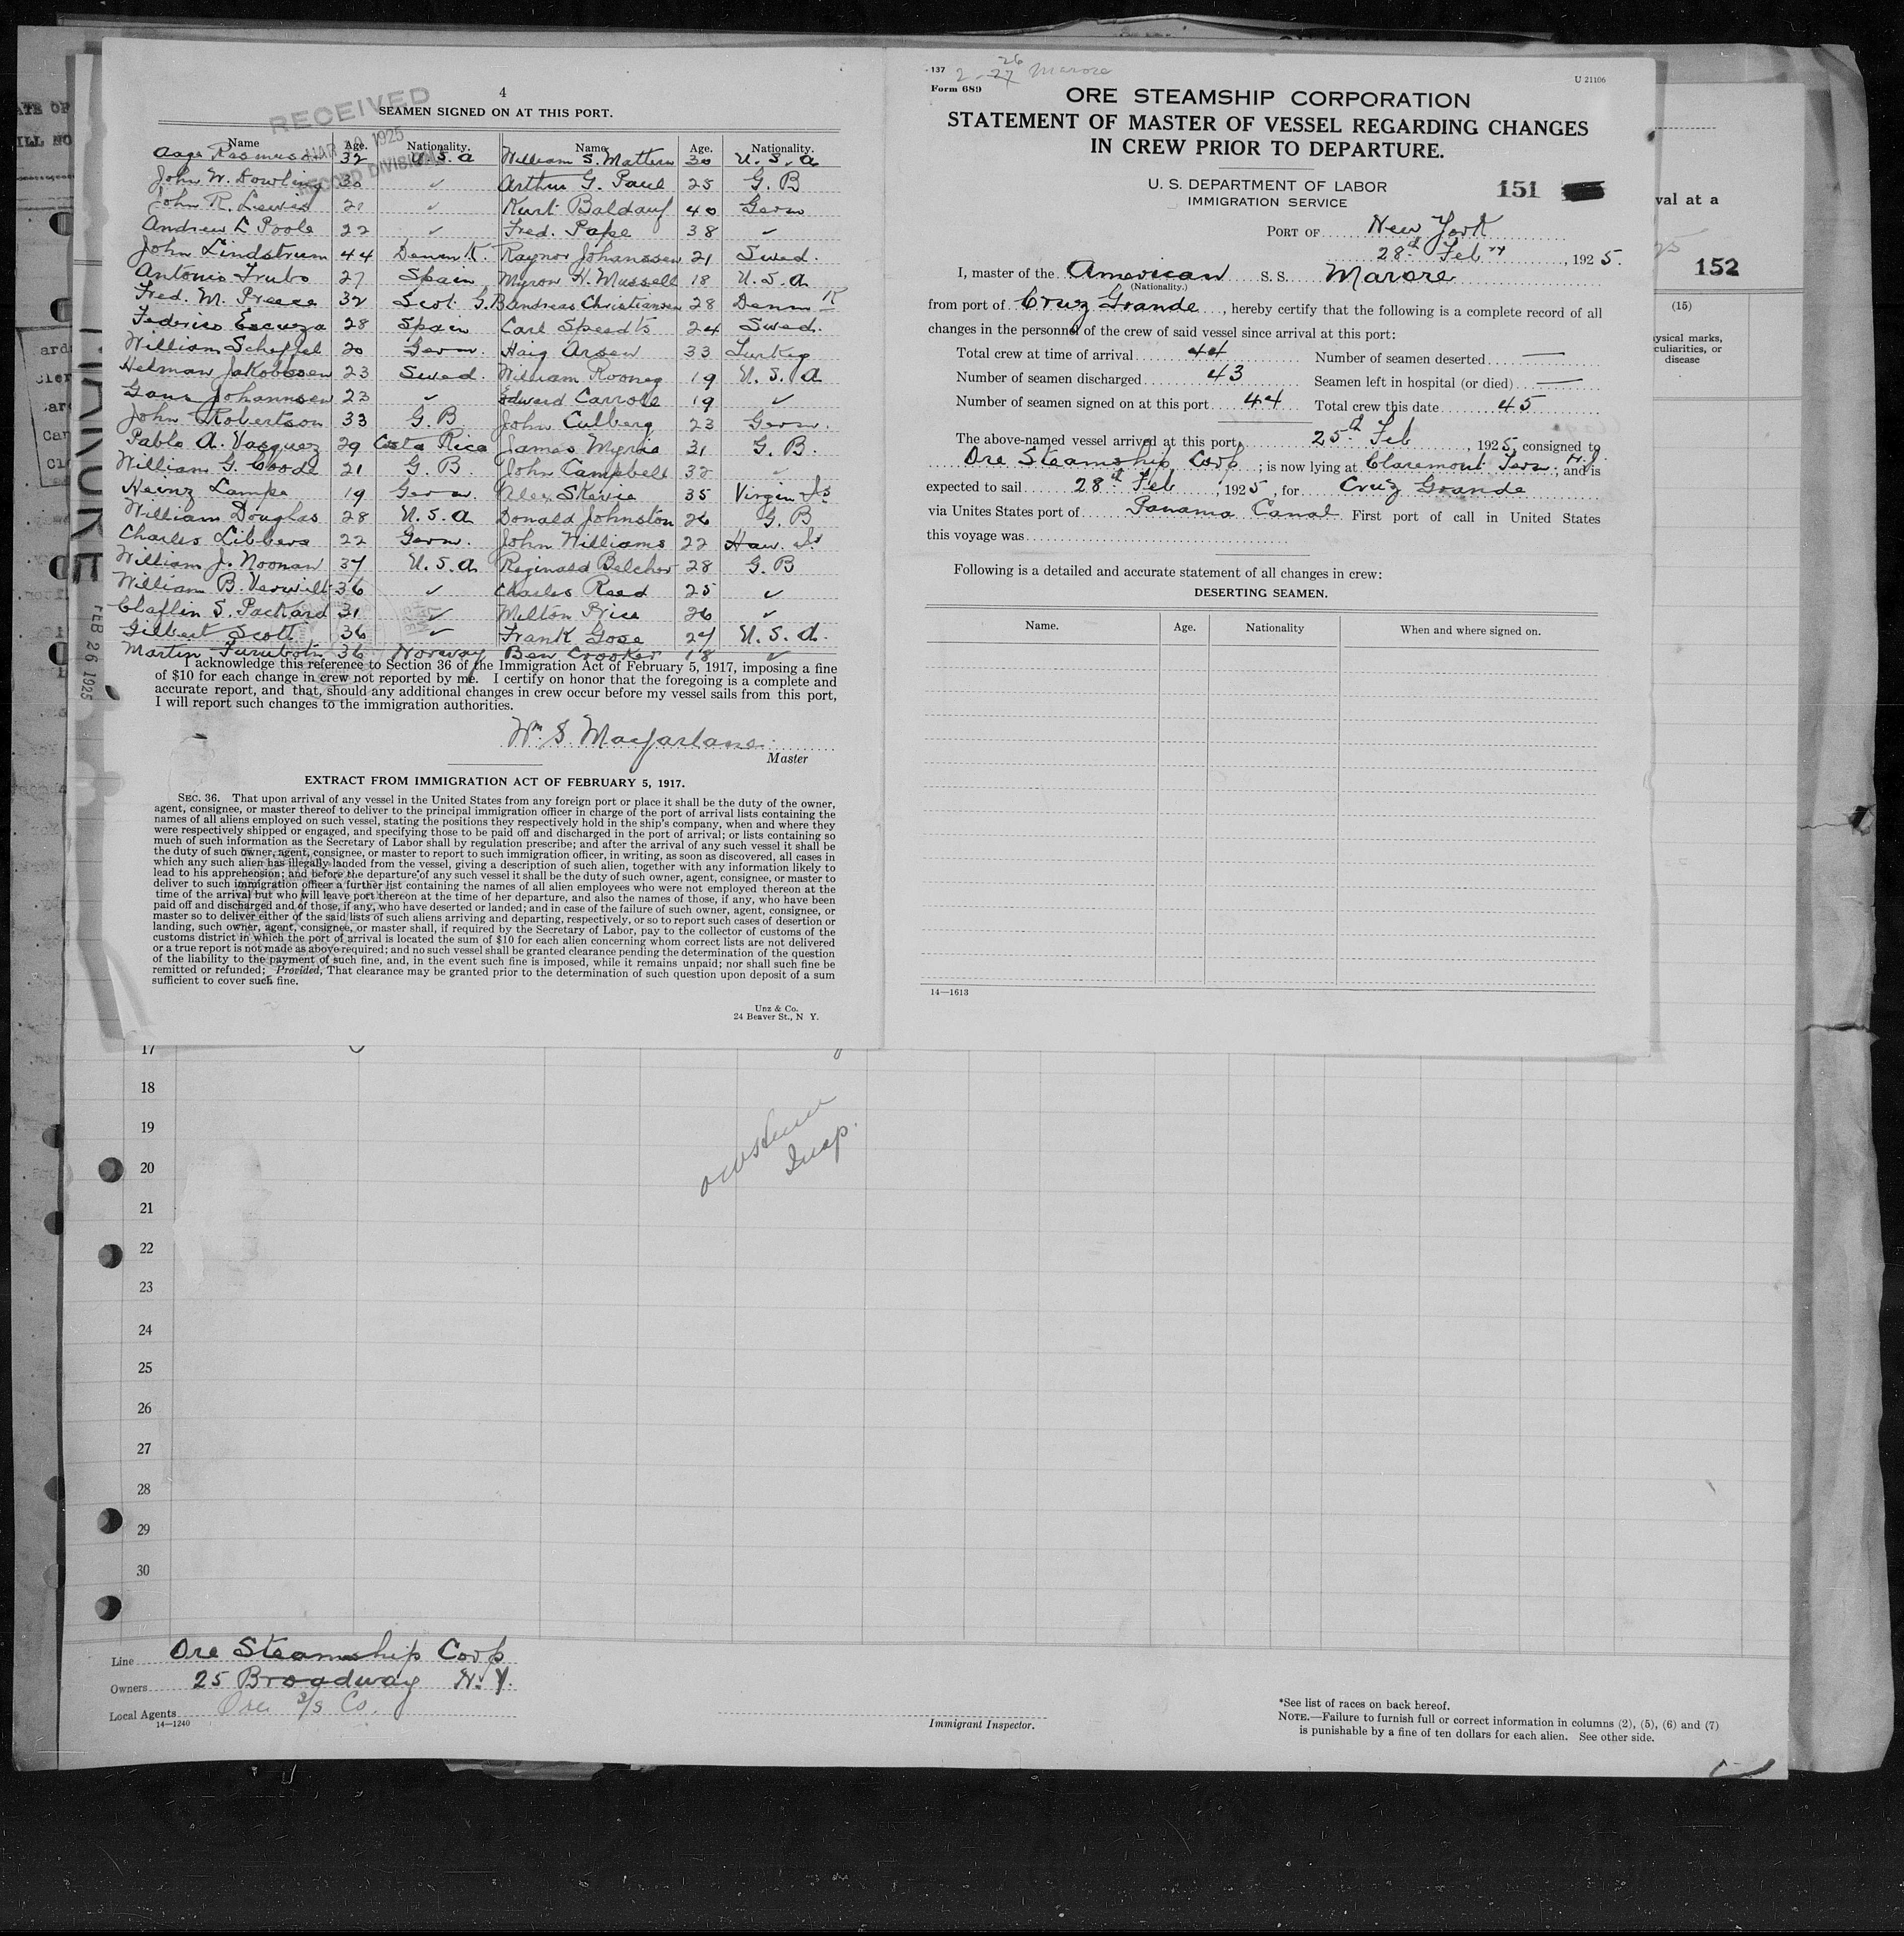 4
RECEIVED
1925
RECORD DIVISION
SEAMEN SIGNED ON AT THIS PORT.
Name Age. Nationality. Name Age. Nationality.
Aage Rasmussen 32 U.S.A William S. Mattern 30 U.S.A
John W. Dowling 30 ✓ Arthur G. Paul 25 G.B
John R. Lewis 21 ✓ Kurt Baldauf 40 Germ
Andrew L Poole 22 ✓ Fred. Pape 38 ✓
John Lindstrum 44 Denm K. Raynor Johanssen 21 Swed.
Antonio Trubo 27 Spain Myron H. Mussell 18 U.S.A
Fred. M. Preece 32 Scot. G.B Andreas Christiansen 28 Denm K
Federico Escueza 28 Spain Carl Speedts 24 Swed.
William Scheffel 20 Germ. Haig Arsen 33 Turkey
Helman Jakobssen 23 Swed. William Rooney 19 U.S.A
Johannsen 23 ✓ Edward Carrole 19 ✓
John Robertson 33 G.B John Culberg 23 Germ.
Pablo A. Vasquez 29 Costa Rica James Myria 31 G.B.
William G. Coode 21 G.B. John Campbell 32 ✓
Heinz Lampe 19 Germ. Alex Skerie 35 Virgin Is
William Douglas 28 U.S.A Donald Johnston 26 G.B
Charles Libbers 22 Germ. John Williams 22 Haw. Is
William J. Noonan 37 U.S.A Reginald Belcher 28 G.B
William B. Verwilt 36 ✓ Charles Reed 25 ✓
Claflin S. Packard 31 ✓ Milton Price 26 ✓
Gilbert Scott 36 ✓ Frank Gose 27 U.S.A.
Martin Furubotn 36 Norway Ben Crooker 18 ✓
I acknowledge this reference to Section 36 of the Immigration Act of February 5, 1917, imposing a fine
of $10 for each change in crew not reported by me. I certify on honor that the foregoing is a complete and
accurate report, and that, should any additional changes in crew occur before my vessel sails from this port,
I will report such changes to the immigration authorities.
Wm S. Macfarlane
Master
EXTRACT FROM IMMIGRATION ACT OF FEBRUARY 5, 1917.
SEC. 36. That upon arrival of any vessel in the United States from any foreign port or place it shall be the duty of the owner,
agent, consignee, or master thereof to deliver to the principal immigration officer in charge of the port of arrival lists containing the
names of all aliens employed on such vessel, stating the positions they respectively hold in the ship's company, when and where they
were respectively shipped or engaged, and specifying those to be paid off and discharged in the port of arrival; or lists containing so
much of such information as the Secretary of Labor shall by regulation prescribe; and after the arrival of any such vessel it shall be
the duty of such owner, agent, consignee, or master to report to such immigration officer, in writing, as soon as discovered, all cases in
which any such alien has illegally landed from the vessel, giving a description of such alien, together with any information likely to
lead to his apprehension; and before the departure of any such vessel it shall be the duty of such owner, agent, consignee, or master to
deliver to such immigration officer a further list containing the names of all alien employees who were not employed thereon at the
time of the arrival but who will leave port thereon at the time of her departure, and also the names of those, if any, who have been
paid off and discharged and of those, if any, who have deserted or landed; and in case of the failure of such owner, agent, consignee, or
master so to deliver either of the said lists of such aliens arriving and departing, respectively, or so to report such cases of desertion or
landing, such owner, agent, consignee, or master shall, if required by the Secretary of Labor, pay to the collector of customs of the
customs district in which the port of arrival is located the sum of $10 for each alien concerning whom correct lists are not delivered
or a true report is not made as above required; and no such vessel shall be granted clearance pending the determination of the question
of the liability to the payment of such fine, and, in the event such fine is imposed, while it remains unpaid; nor shall such fine be
remitted or refunded; Provided, That clearance may be granted prior to the determination of such question upon deposit of a sum
sufficient to cover such fine.
Unz & Co.
24 Beaver St., N Y.
FEB 26 1925
137 2-27 26 Marore
Form 689
U 21106
ORE STEAMSHIP CORPORATION
STATEMENT OF MASTER OF VESSEL REGARDING CHANGES
IN CREW PRIOR TO DEPARTURE.
U. S. DEPARTMENT OF LABOR
IMMIGRATION SERVICE
151
PORT OF New York
28th Febry, 1925.
I, master of the American S. S. Marore
(Nationality.)
from port of Cruz Grande, hereby certify that the following is a complete record of all
changes in the personnel of the crew of said vessel since arrival at this port:
Total crew at time of arrival 44 Number of seamen deserted —
Number of seamen discharged 43 Seamen left in hospital (or died) —
Number of seamen signed on at this port 44 Total crew this date 45
The above-named vessel arrived at this port, 25th Feb, 1925, consigned to
Ore Steamship Corp; is now lying at Claremont Term. N.J; and is
expected to sail 28th Feb, 1925, for Cruz Grande
via Unites States port of Panama Canal First port of call in United States
this voyage was
Following is a detailed and accurate statement of all changes in crew:
DESERTING SEAMEN.
Name. Age. Nationality When and where signed on.
14—1613
val at a
152
(15)
ysical marks,
culiarities, or
disease
17
18
19
20
21
22
23
24
25
26
27
28
29
30
Insp.
Line Ore Steamship Corp
Owners 25 Broadway N.Y.
Local Agents Ore S/S Co.
14—1240
Immigrant Inspector.
*See list of races on back hereof.
NOTE.—Failure to furnish full or correct information in columns (2), (5), (6) and (7)
is punishable by a fine of ten dollars for each alien. See other side.